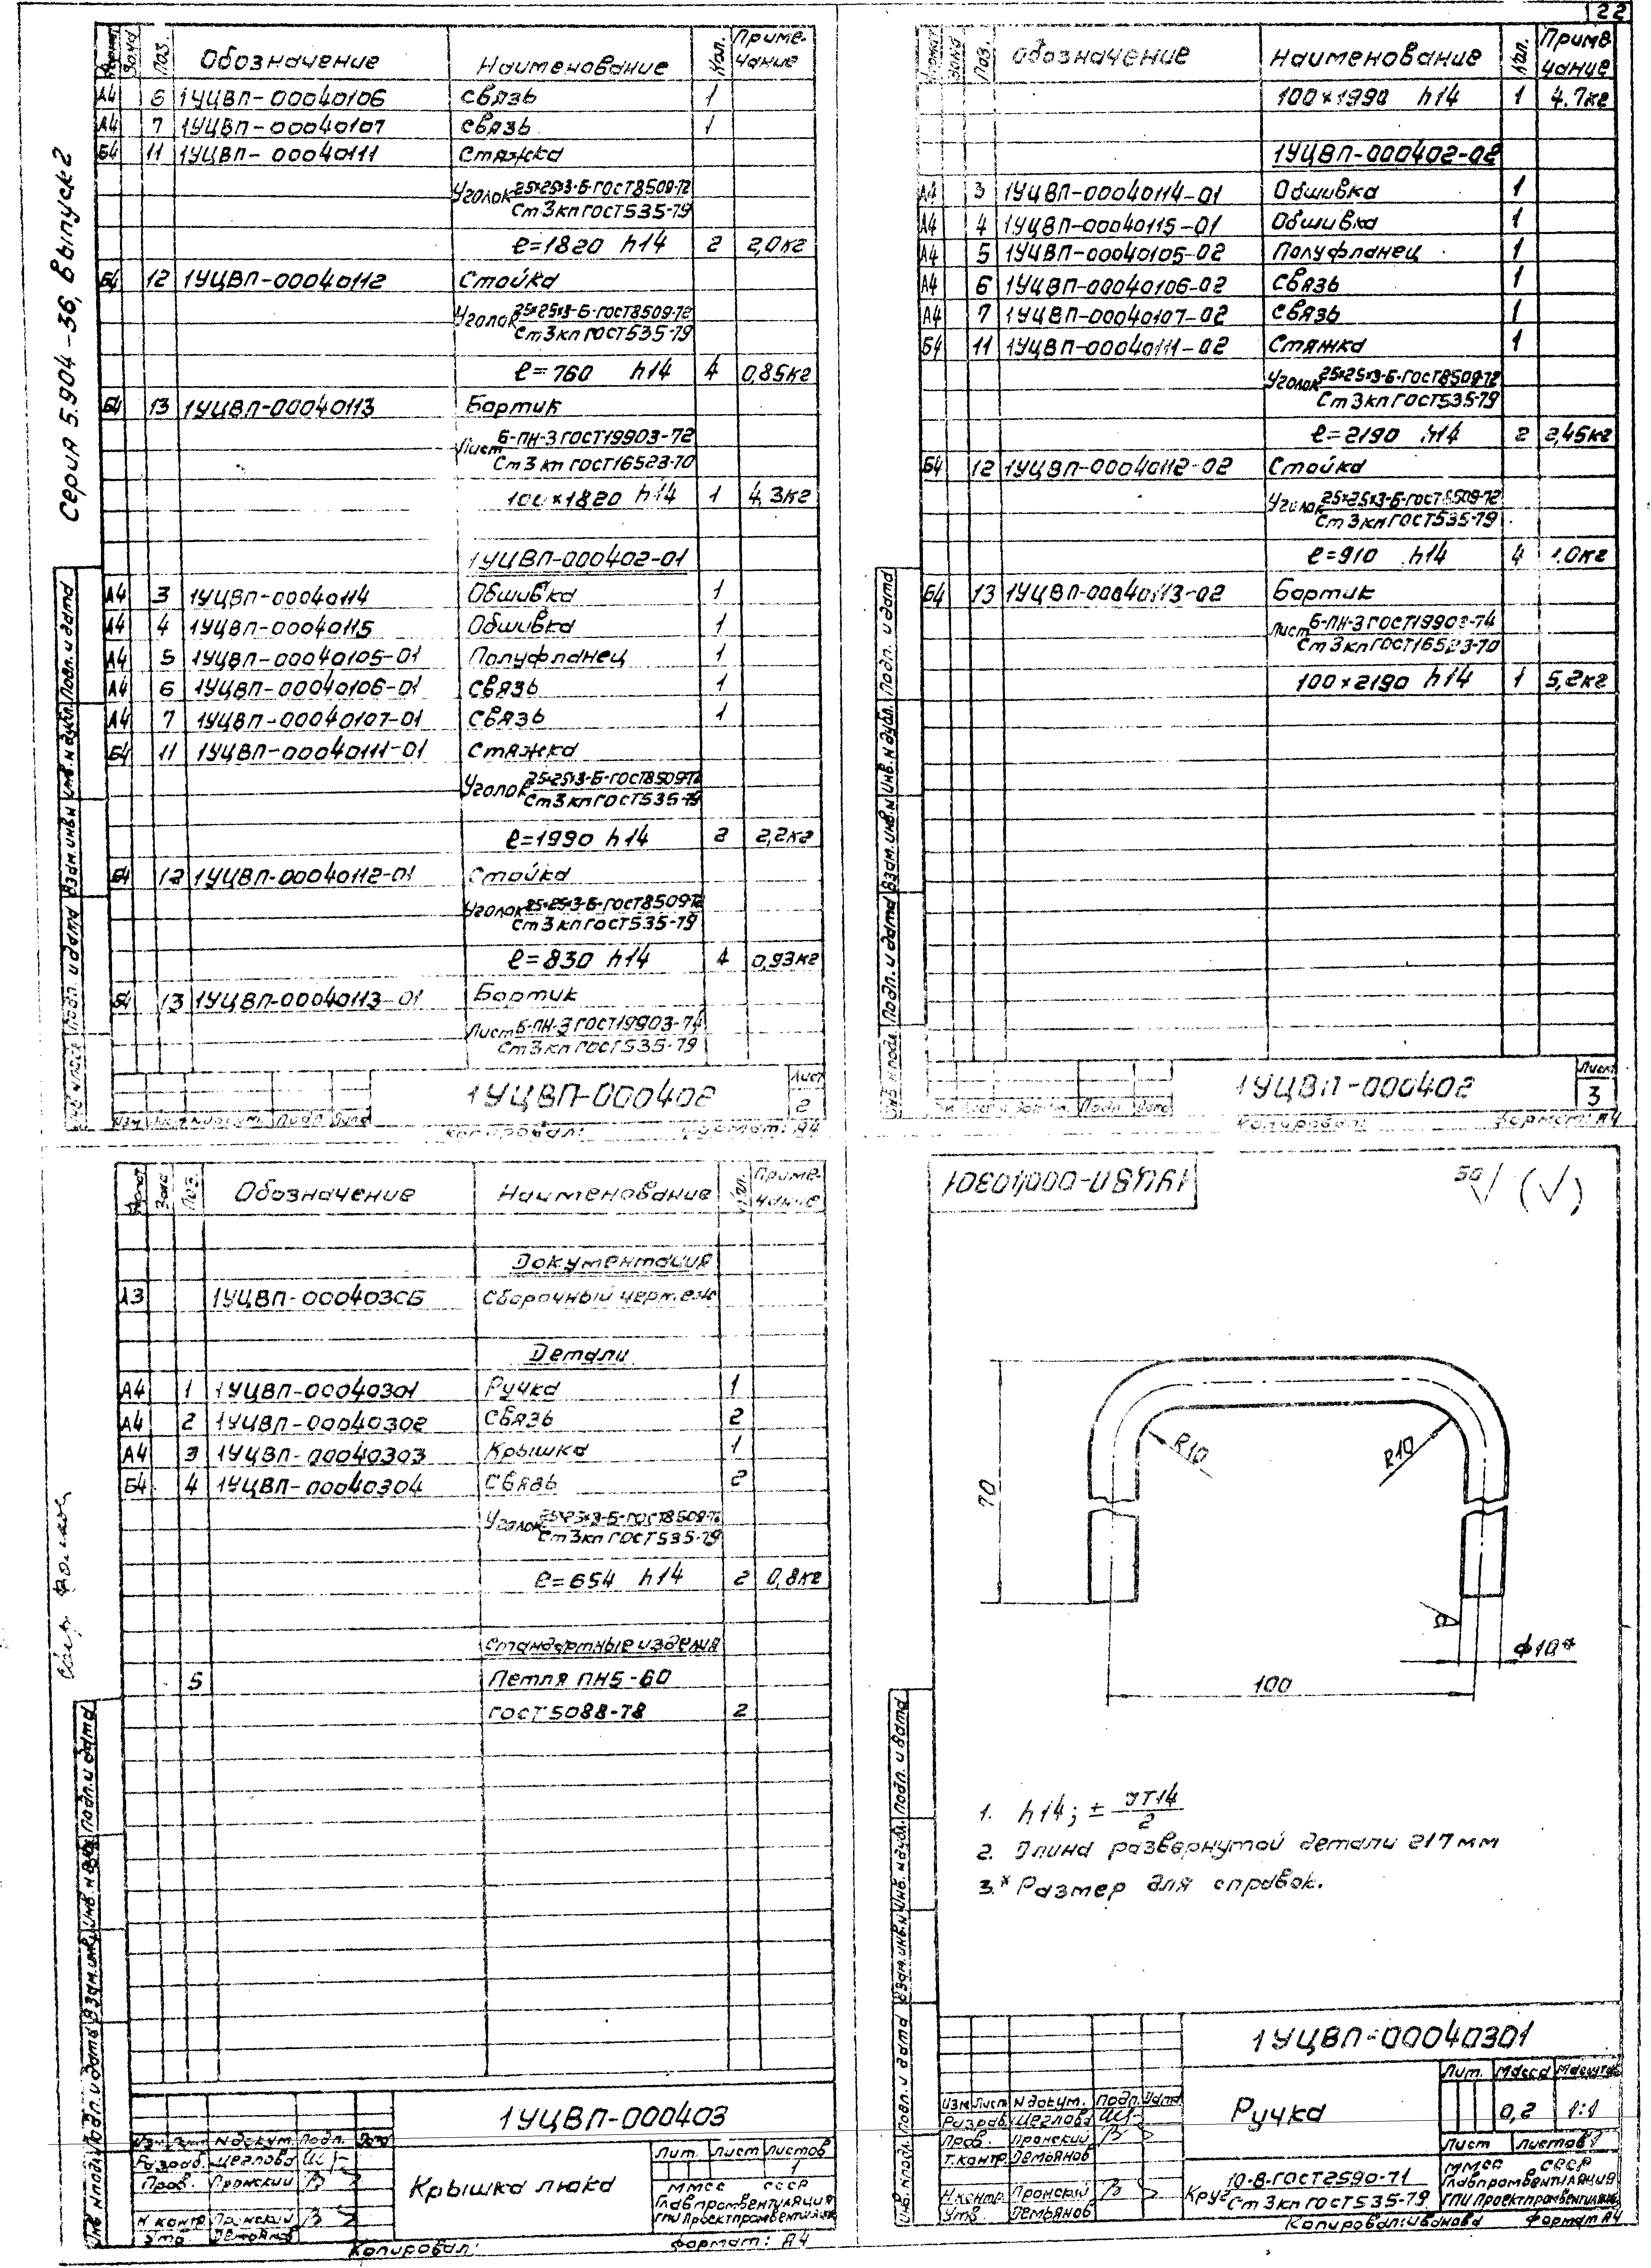 22
Серия 5.904-36, Выпуск 2
Формат Зона Поз. Обозначение Наименование Кол. Примечание
А4 6 1УЦВП-00040106 Связь 1
А4 7 1УЦВП-00040107 Связь 1
Б4 11 1УЦВП-00040111 Стяжка
Уголок 25×25×3-Б-ГОСТ8509-72
Ст3кп ГОСТ535-79
ℓ=1820 h14 2 2,0кг
Б4 12 1УЦВП-00040112 Стойка
Уголок 25×25×3-Б-ГОСТ8509-72
Ст3кп ГОСТ535-79
ℓ=760 h14 4 0,85кг
Б4 13 1УЦВП-00040113 Бортик
Лист Б-ПН-3 ГОСТ19903-72
Ст3кп ГОСТ16523-70
100×1820 h14 1 4,3кг
1УЦВП-000402-01
А4 3 1УЦВП-00040114 Обшивка 1
А4 4 1УЦВП-00040115 Обшивка 1
А4 5 1УЦВП-00040105-01 Полуфланец 1
А4 6 1УЦВП-00040106-01 Связь 1
А4 7 1УЦВП-00040107-01 Связь 1
Б4 11 1УЦВП-00040111-01 Стяжка
Уголок 25×25×3-Б-ГОСТ8509-72
Ст3кп ГОСТ535-79
ℓ=1990 h14 2 2,2кг
Б4 12 1УЦВП-00040112-01 Стойка
Уголок 25×25×3-Б-ГОСТ8509-72
Ст3кп ГОСТ535-79
ℓ=830 h14 4 0,93кг
Б4 13 1УЦВП-00040113-01 Бортик
Лист Б-ПН-3 ГОСТ19903-74
Ст3кп ГОСТ535-79
Инв. N подл. Подп. и дата Взам. инв. N Инв. N дубл. Подп. и дата
1УЦВП-000402
Лист
2
Изм Лист N докум. Подп. Дата
Копировал: Формат: А4
Формат Зона Поз. Обозначение Наименование Кол. Примечание
100×1990 h14 1 4,7кг
1УЦВП-000402-02
А4 3 1УЦВП-00040114-01 Обшивка 1
А4 4 1УЦВП-00040115-01 Обшивка 1
А4 5 1УЦВП-00040105-02 Полуфланец 1
А4 6 1УЦВП-00040106-02 Связь 1
А4 7 1УЦВП-00040107-02 Связь 1
Б4 11 1УЦВП-00040111-02 Стяжка 1
Уголок 25×25×3-Б-ГОСТ8509-72
Ст3кп ГОСТ535-79
ℓ=2190 h14 2 2,45кг
Б4 12 1УЦВП-00040112-02 Стойка
Уголок 25×25×3-Б-ГОСТ8509-72
Ст3кп ГОСТ535-79
ℓ=910 h14 4 1.0кг
Б4 13 1УЦВП-00040113-02 Бортик
Лист Б-ПН-3 ГОСТ19903-74
Ст3кп ГОСТ16523-70
100×2190 h14 1 5,2кг
Инв. N подл. Подп. и дата Взам. инв. N Инв. N дубл. Подп. и дата
1УЦВП-000402
Лист
3
Изм Лист N докум. Подп. Дата
Копировал: Формат: А4
Формат Зона Поз. Обозначение Наименование Кол. Примечание
Документация
А3 1УЦВП-000403СБ Сборочный чертеж
Детали
А4 1 1УЦВП-00040301 Ручка 1
А4 2 1УЦВП-00040302 Связь 2
А4 3 1УЦВП-00040303 Крышка 1
Б4 4 1УЦВП-00040304 Связь 2
Уголок 25×25×3-Б-ГОСТ8509-72
Ст3кп ГОСТ535-79
ℓ=654 h14 2 0,8кг
Стандартные изделия
5 Петля ПН5-60
ГОСТ5088-78 2
Инв. N подл. Подп. и дата Взам. инв. N Инв. N дубл. Подп. и дата
1УЦВП-000403
Изм Лист N докум. Подп. Дата
Разраб. Щеглова
Пров. Пронский
Н контр Пронский
Утв Демьянов
Крышка люка
Лит. Лист Листов
1
ММСС СССР
Главпромвентиляция
ГПИ Проектпромвентиляция
Копировал: Формат: А4
1УЦВП-00040301
50 √ (√)
R10
R10
70
100
ϕ10*
1. h14; ± JT14
2
2. Длина развернутой детали 217мм
3.* Размер для справок.
Инв. N подл. Подп. и дата Взам. инв. N Инв. N дубл. Подп. и дата
1УЦВП-00040301
Изм Лист N докум. Подп. Дата
Разраб. Щеглова
Пров. Пронский
Т.контр. Демьянов
Н.контр. Пронский
Утв Демьянов
Ручка
Лит. Масса Масштаб
0,2 1:1
Лист Листов 1
Круг 10-В-ГОСТ2590-71
Ст3кп ГОСТ535-79
ММСС СССР
Главпромвентиляция
ГПИ Проектпромвентиляция
Копировал:Иванова Формат А4